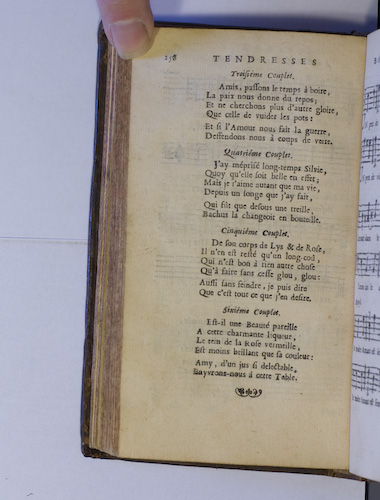 158 TENDRESSES
Troisiéme Couplet.
Amis, passons le temps à boire,
La paix nous donne du repos;
Et ne cherchons plus d'autre gloire,
Que celle de vuider les pots:
Et si l'Amour nous fait la guerre,
Deffendons nous à coups de verre.
Quatriéme Couplet.
J'ay méprisé long-temps Silvie,
Quoy qu'elle soit belle en effet;
Mais je l'aime autant que ma vie,
Depuis un songe que j'ay fait,
Qui fût que dessous une treille,
Bachus la changeoit en bouteille.
Cinquiéme Couplet.
De son corps de Lys & de Rose,
Il n'en est resté qu'un long-cod,
Qui n'est bon à rien autre chose
Qu'à faire sans cesse glou, glou:
Aussi sans feindre, je puis dire
Que c'est tout ce que j'en desire.
Sixiéme Couplet.
Est-il une Beauté pareille
A cette charmante liqueur,
Le tein de la Rose vermeille,
Est moins brillant que sa couleur:
Amy, d'un jus si delectable,
Enyvrons-nous à cette Table.